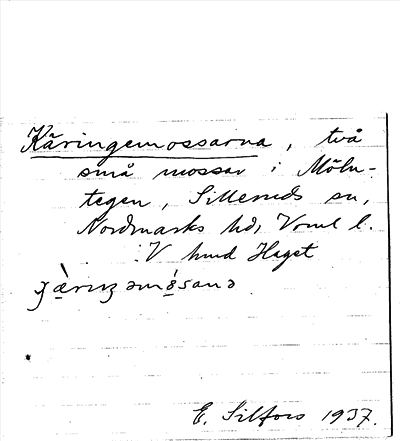 Käringemossarna, två
små mossar i Möln-
tegen, Silleruds sn,
Nordmarks hd, Vrml l.
:V hmd Haget
E. Silfors 1937.